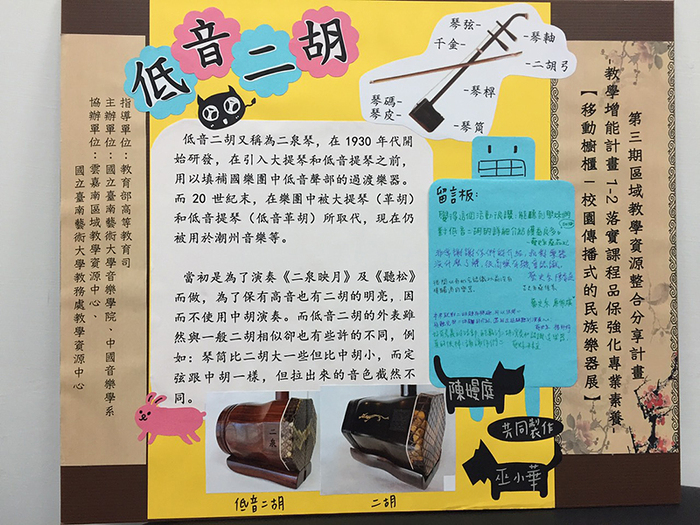 低音二胡
琴弦-
千金-
-琴軸
-二胡弓
琴碼-
琴皮-
-琴桿
-琴筒
低音二胡又稱為二泉琴，在1930年代開
始研發，在引入大提琴和低音提琴之前，
用以填補國樂團中低音聲部的過渡樂器。
而20世紀末，在樂團中被大提琴（革胡）
和低音提琴（低音革胡）所取代，現在仍
被用於潮州音樂等。
當初是為了演奏《二泉映月》及《聽松》
而做，為了保有高音也有二胡的明亮，因
而不使用中胡演奏。而低音二胡的外表雖
然與一般二胡相似卻也有些許的不同，例
如：琴筒比二胡大一些但比中胡小，而定
弦跟中胡一樣，但拉出來的音色截然不
同。
低音二胡
二胡
留言板：
陳嫚庭
共同製作
巫小華
第三期區域教學資源整合分享計畫
-教學增能計畫1-2落實課程品保強化專業素養
【移動櫥櫃－校園傳播式的民族樂器展】
指導單位：教育部高等教育司
主辦單位：國立臺南藝術大學音樂學院、中國音樂學系
協辦單位：雲嘉南區域教學資源中心、
國立臺南藝術大學教務處教學資源中心